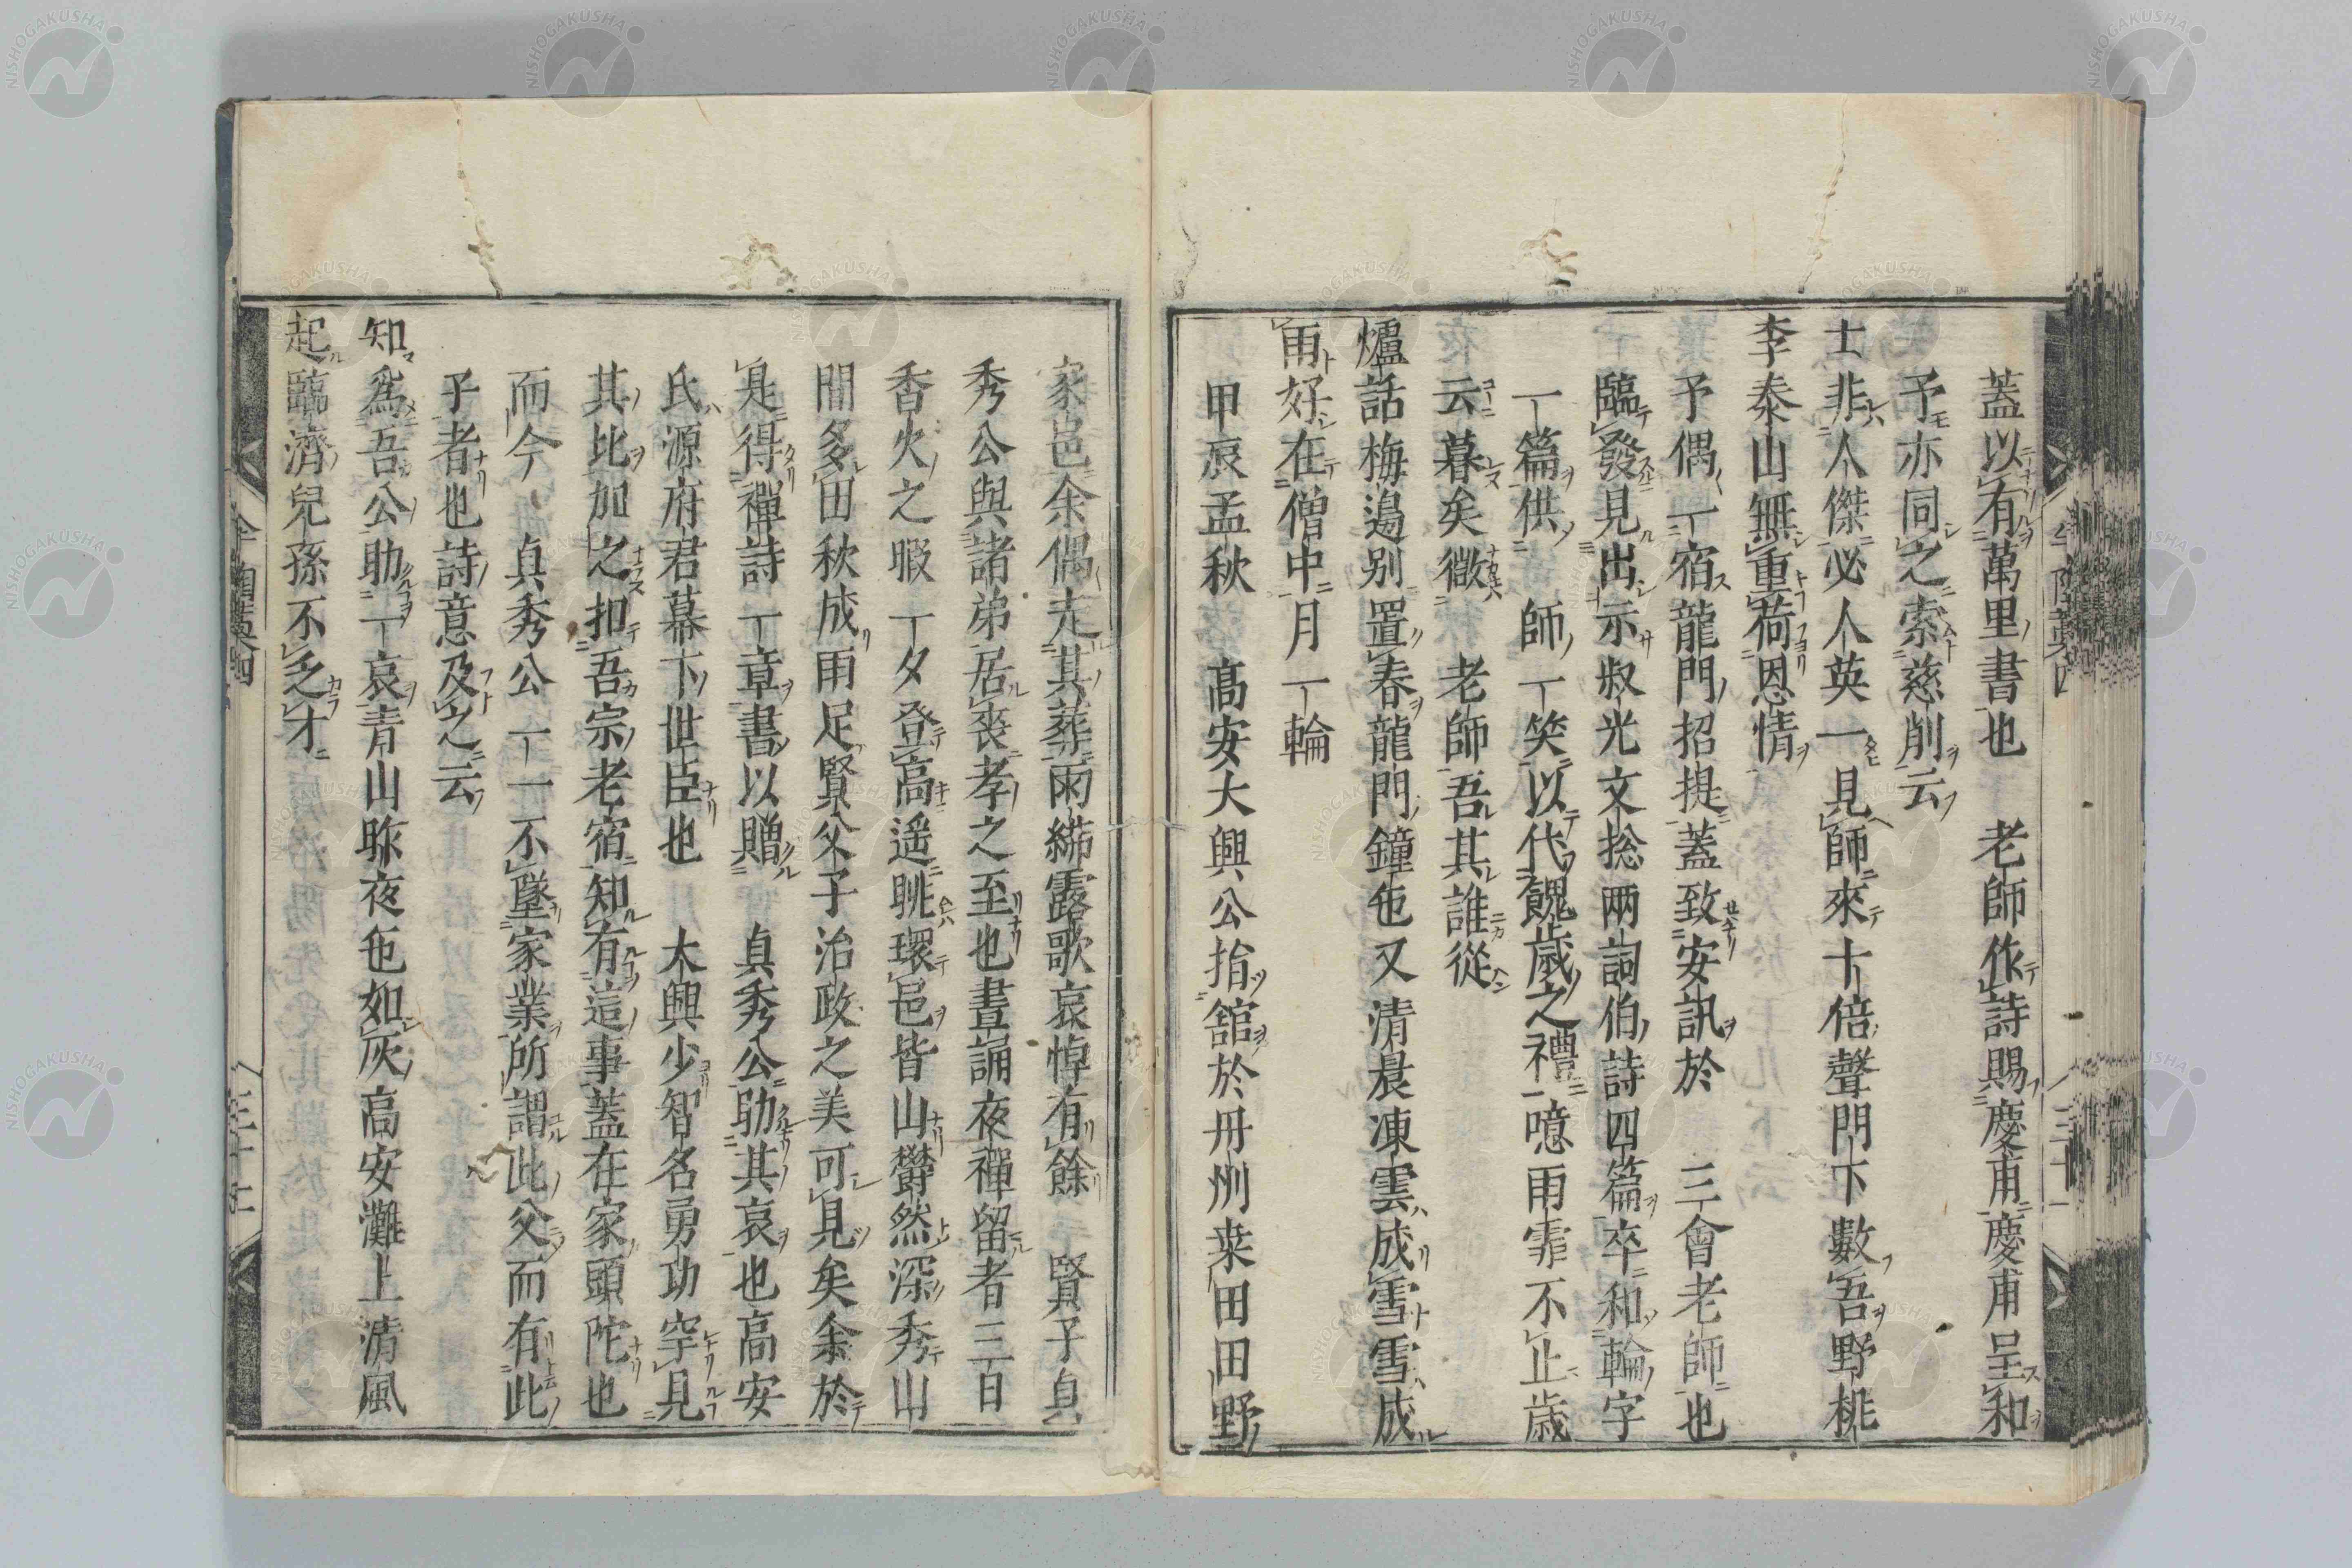 蓋以有萬里書也　老師作詩賜慶甫慶甫呈和
予亦同之索慈削云
士非人傑必人英一見師來十倍聲門下數吾野桃
李泰山無重荷恩情
予偶一宿龍門招提蓋致安訊於　三會老師也
臨發見出示叔光文捴兩詞伯詩四篇卒和輪字
一篇供　師一笑以代餽歳之禮一噫雨霏不止歳
云暮矣微　老師吾其誰從
爐話梅邉别置春龍門鐘也又清晨凍雲成雪雪成
雨好在僧中月一輪
甲辰孟秋　髙安大興公指舘於丹州桒田田野
家邑余偶走其葬兩綍露歌哀悼有餘　賢子貞
秀公與諸弟居喪孝之至也晝誦夜禪留者三百
香火之暇一夕登高遥眺環邑皆山欝然深秀山
間多田秋成雨足賢父子治政之美可見矣余於
是得禪詩一章書以贈　貞秀公助其哀也高安
氏源府君幕下世臣也　大興少智名勇功罕見
其比加之扣吾宗老宿知有這事蓋在家頭陀也
而今　貞秀公一一不墜家業所謂此父而有此
子者也詩意及之云
知爲吾公助一哀青山昨夜也如灰高安灘上清風
起臨濟兒孫不乏才
NISHOGAKUSHA